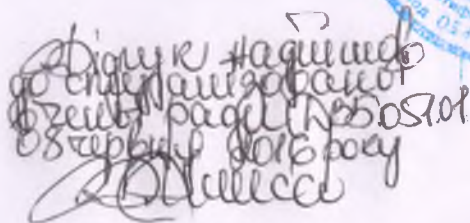 Відгук надійшов
до спеціалізованої
вченої ради Д 55.051.01
03 червня 2016 року